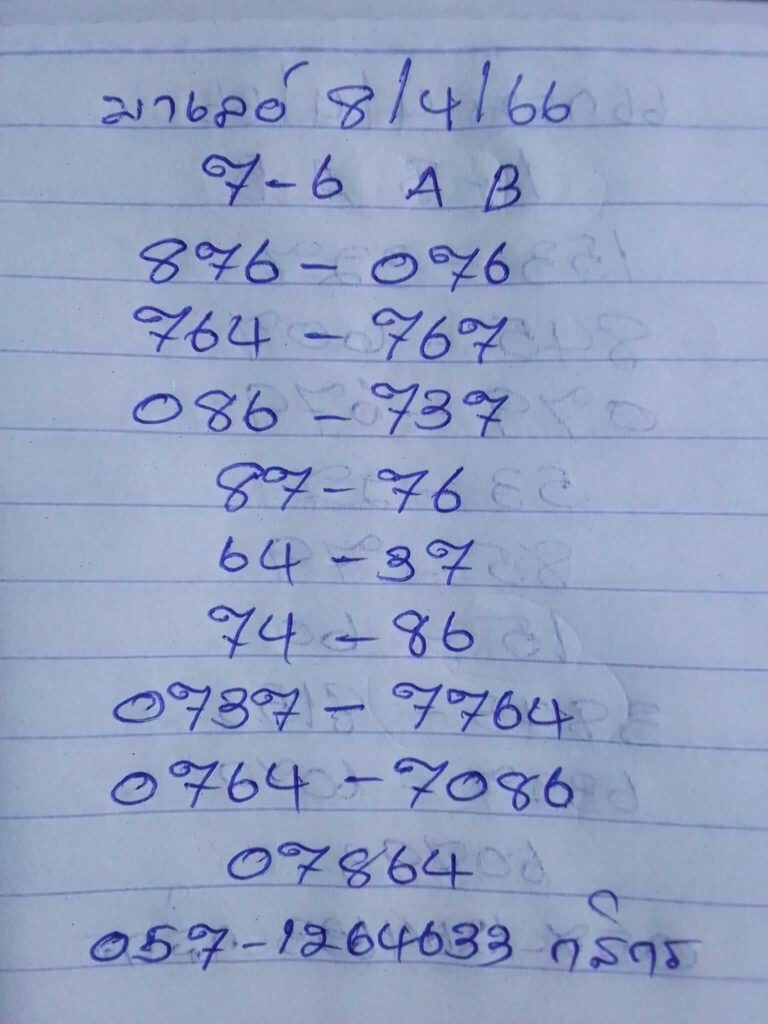 มาเลย์ 8/4/66
7-6 A B
876 - 076
764 - 767
086 - 737
87 - 76
64 - 37
74 - 86
0737 - 7764
0764 - 7086
07864
057-1264633 กสิกร